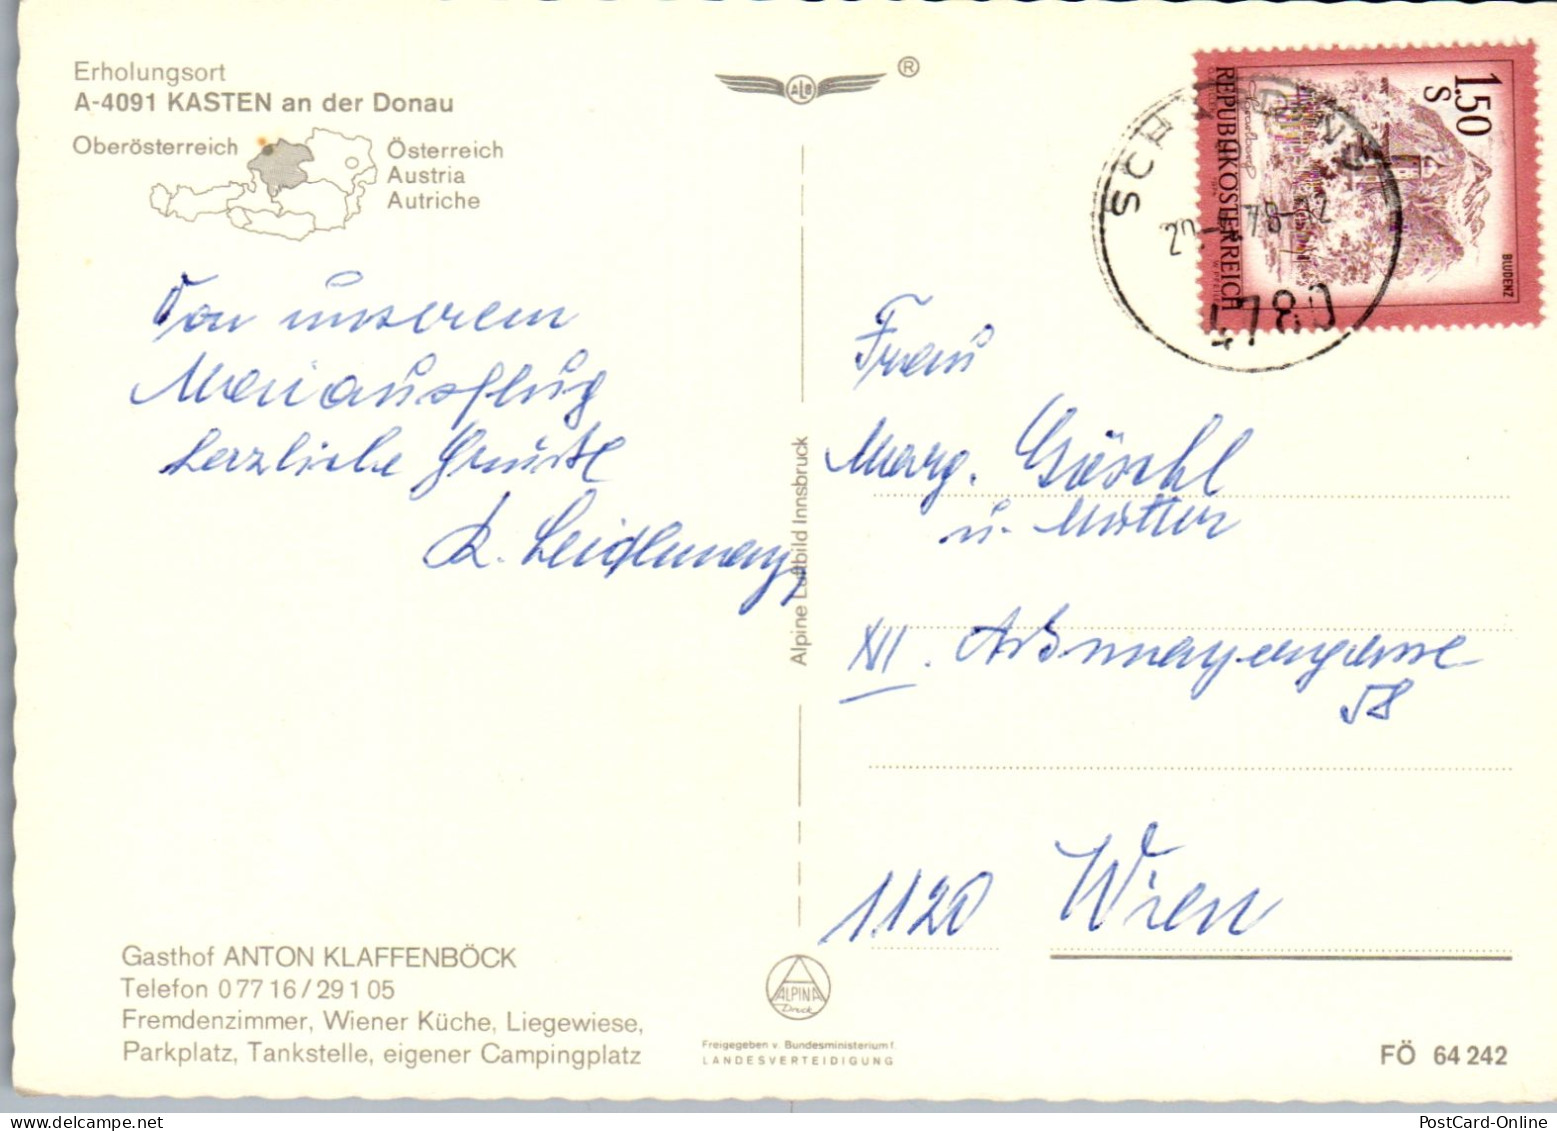 Erholungsort
A-4091 KASTEN an der Donau
Oberösterreich
Österreich
Austria
Autriche
ALB
®
SCHÄRDING
78-12
4780
1.50
S
REPUBLIK ÖSTERREICH
BLUDENZ
Von unserem
Maiausflug
herzliche Grüße
Frau
Marg. Göschl
u. Mutter
XII.
58
1120 Wien
Alpine Luftbild Innsbruck
Gasthof ANTON KLAFFENBÖCK
Telefon 0 77 16 / 29 1 05
Fremdenzimmer, Wiener Küche, Liegewiese,
Parkplatz, Tankstelle, eigener Campingplatz
ALPINA
Druck
Freigegeben v. Bundesministerium f.
LANDESVERTEIDIGUNG
FÖ 64 242
PostCard-Online